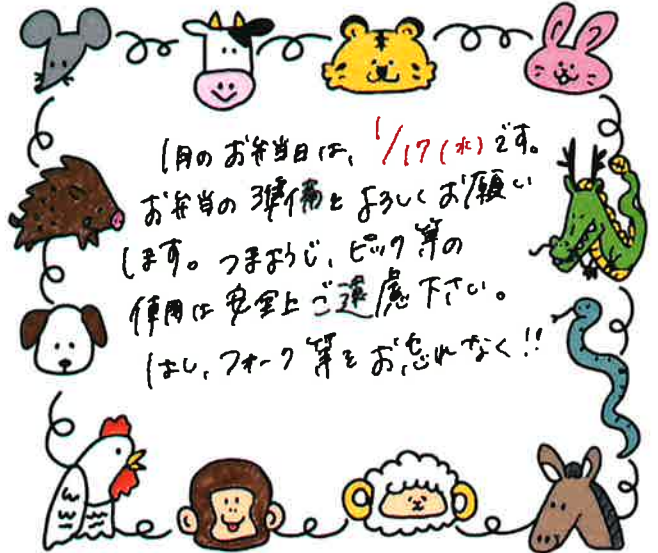 1月のお弁当日は、1/17(水)です。
お弁当の準備をよろしくお願い
します。つまようじ、ピック等の
使用は安全上ご遠慮下さい。
はし、フォーク等をお忘れなく!!